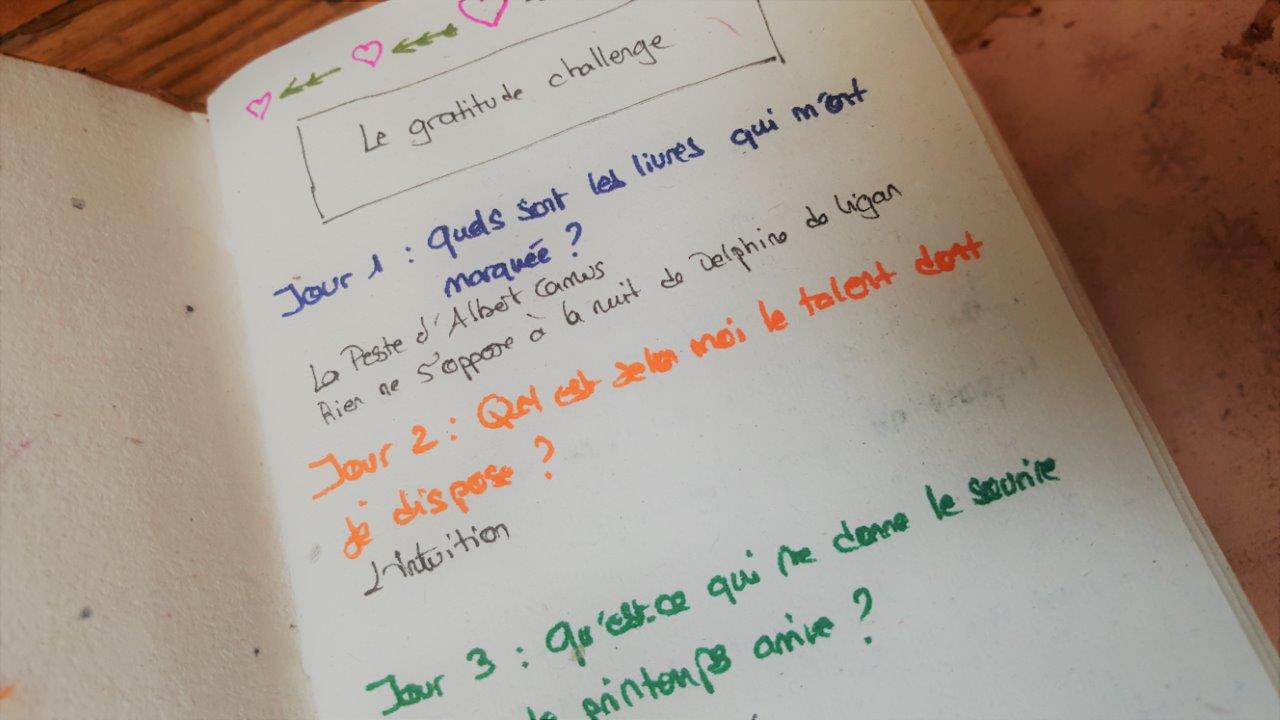 Le gratitude challenge
Jour 1 : Quels sont les livres qui m'ont
marquée ?
La Peste d'Albert Camus
Rien ne s'oppose à la nuit de Delphine de Vigan
Jour 2 : Quel est selon moi le talent dont
je dispose ?
L'intuition
Jour 3 : Qu'est-ce qui me donne le sourire
le printemps arrive ?